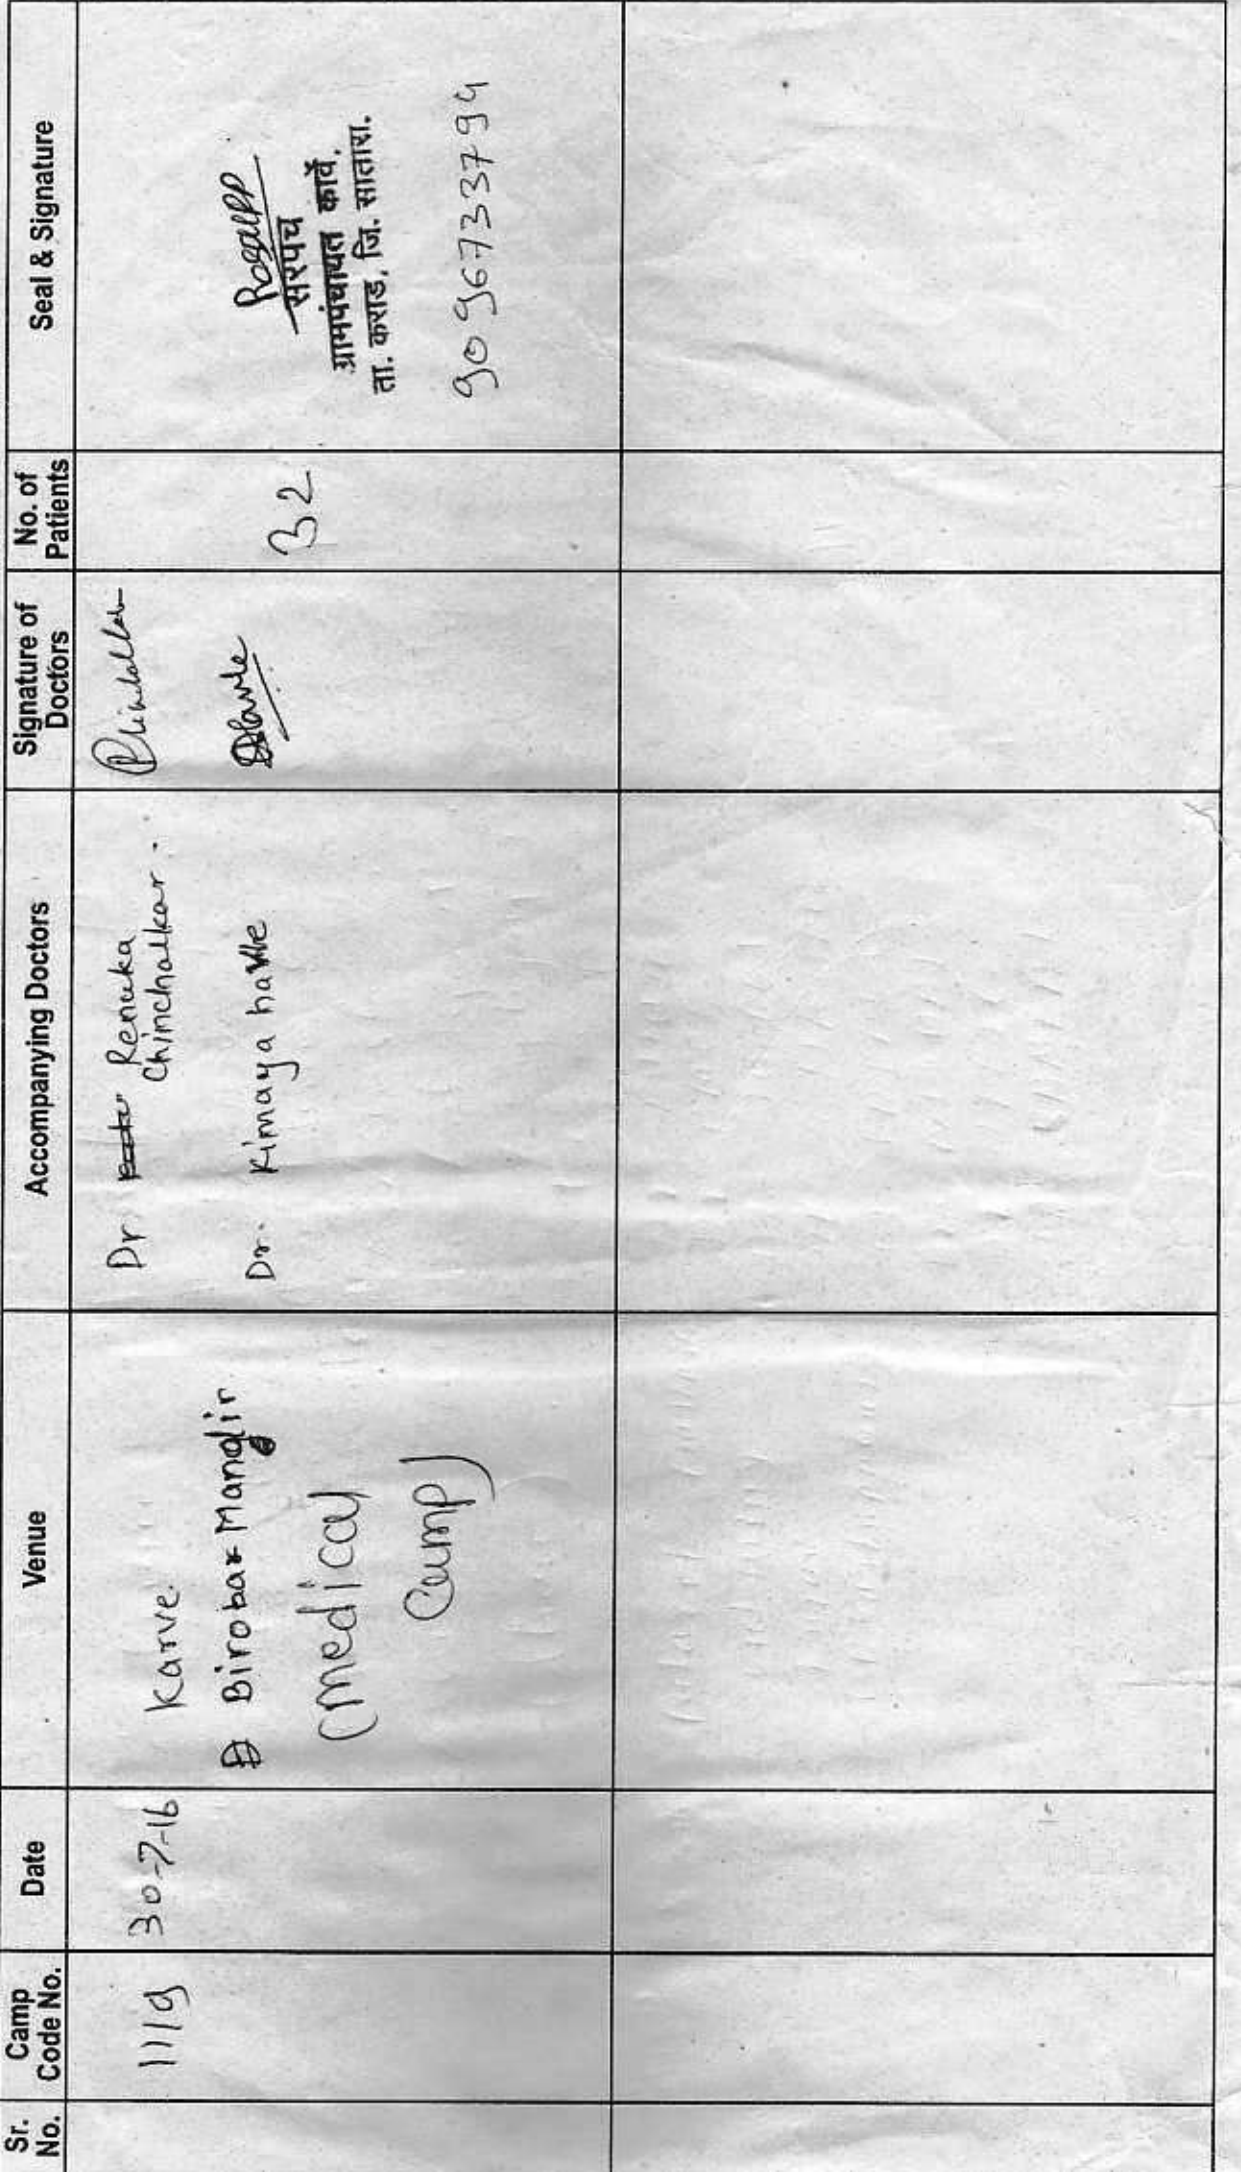 Sr. No.
Camp Code No.
Date
Venue
Accompanying Doctors
Signature of Doctors
No. of Patients
Seal & Signature
1119
30-7-16
Karve.
Birobar Mandir
(Medical
Camp)
Dr. Renuka
Chinchalkar.
Dr. Kimaya harke
32
सरपंच
ग्रामपंचायत कार्वे,
ता. कराड, जि. सातारा.